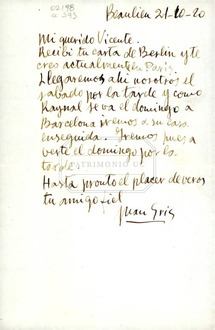 02198
a 293
Beaulieu 21-10-20
Mi querido Vicente.
Recibí tu carta de Berlin y te
creo actualmente en Paris
Llegaremos ahi nosotros el
sabado por la tarde y como
Raynal se va el domingo a
Barcelona iremos a su casa
enseguida. Iremos pues a
verte el domingo por la
tarde.
Hasta pronto el placer de veros
tu amigo fiel
Juan Gris
PATRIMONIO U